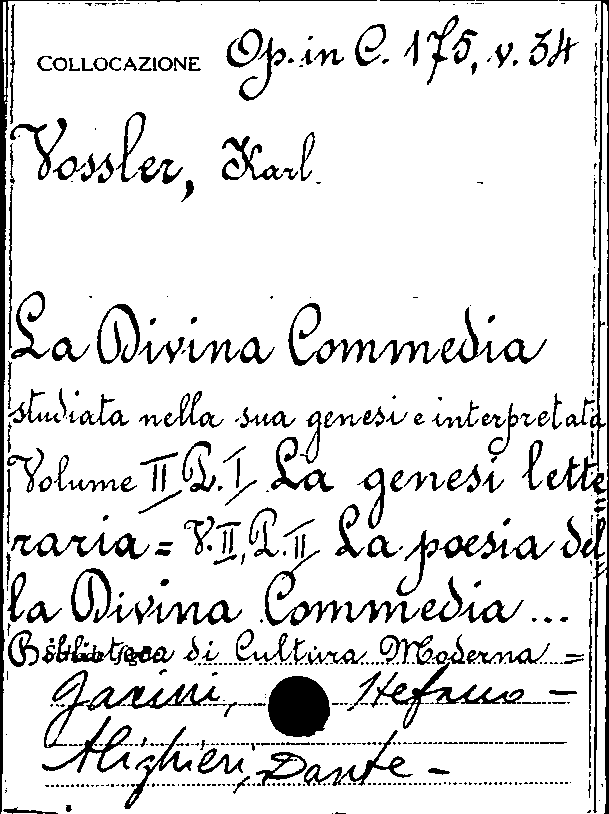 COLLOCAZIONE Op. in C. 175, v. 34
Vossler, Karl.
La Divina Commedia
studiata nella sua genesi e interpretata
Volume II P. I La genesi lette
raria = V. II, P. II La poesia del
la Divina Commedia ...
Biblioteca di Cultura Moderna =
Jacini, Stefano -
Alighieri, Dante -